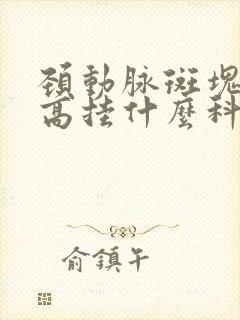 頸動脈斑塊
高挂什麼科
俞鎮午